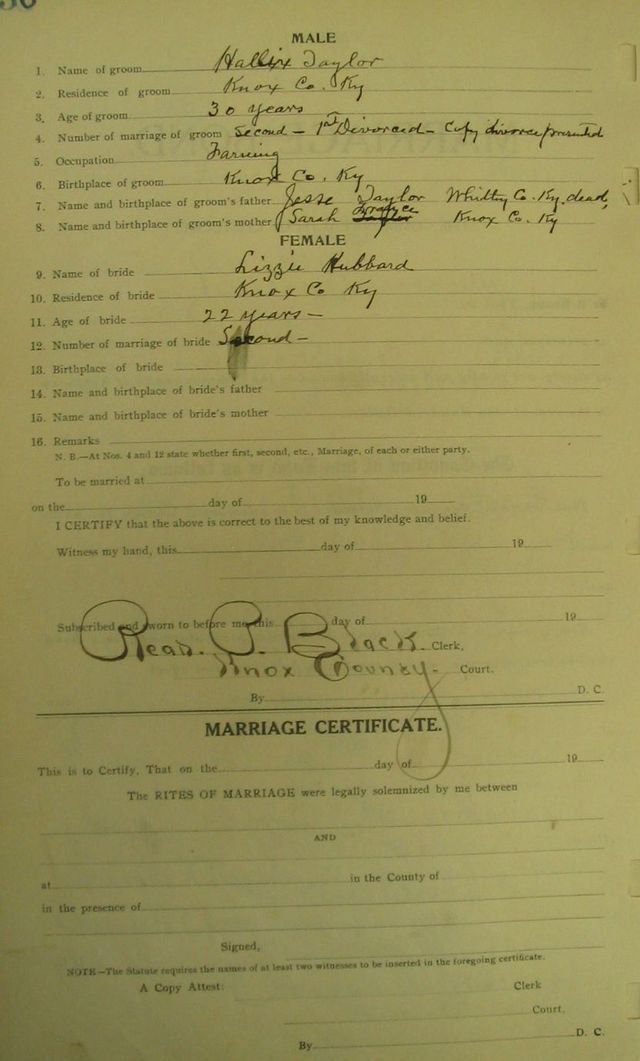 MALE
1. Name of groom Hallix Taylor
2. Residence of groom Knox Co. Ky
3. Age of groom 30 years
4. Number of marriage of groom Second – 1st Divorced – Copy divorce presented
5. Occupation Farming
6. Birthplace of groom Knox Co. Ky
7. Name and birthplace of groom's father Jesse Taylor Whitley Co. Ky. dead,
8. Name and birthplace of groom's mother Sarah Knox Co. Ky
FEMALE
9. Name of bride Lizzie Hubbard
10. Residence of bride Knox Co Ky
11. Age of bride 22 years –
12. Number of marriage of bride Second –
13. Birthplace of bride
14. Name and birthplace of bride's father
15. Name and birthplace of bride's mother
16. Remarks
N. B.—At Nos. 4 and 12 state whether first, second, etc., Marriage, of each or either party.
To be married at
on the day of 19
I CERTIFY that the above is correct to the best of my knowledge and belief.
Witness my hand, this day of 19
Subscribed and sworn to before me this day of 19
Read P. Black Clerk,
Knox County Court.
By D. C.
MARRIAGE CERTIFICATE.
This is to Certify, That on the day of 19
The RITES OF MARRIAGE were legally solemnized by me between
AND
at in the County of
in the presence of
Signed,
NOTE—The Statute requires the names of at least two witnesses to be inserted in the foregoing certificate.
A Copy Attest: Clerk
Court,
By D. C.